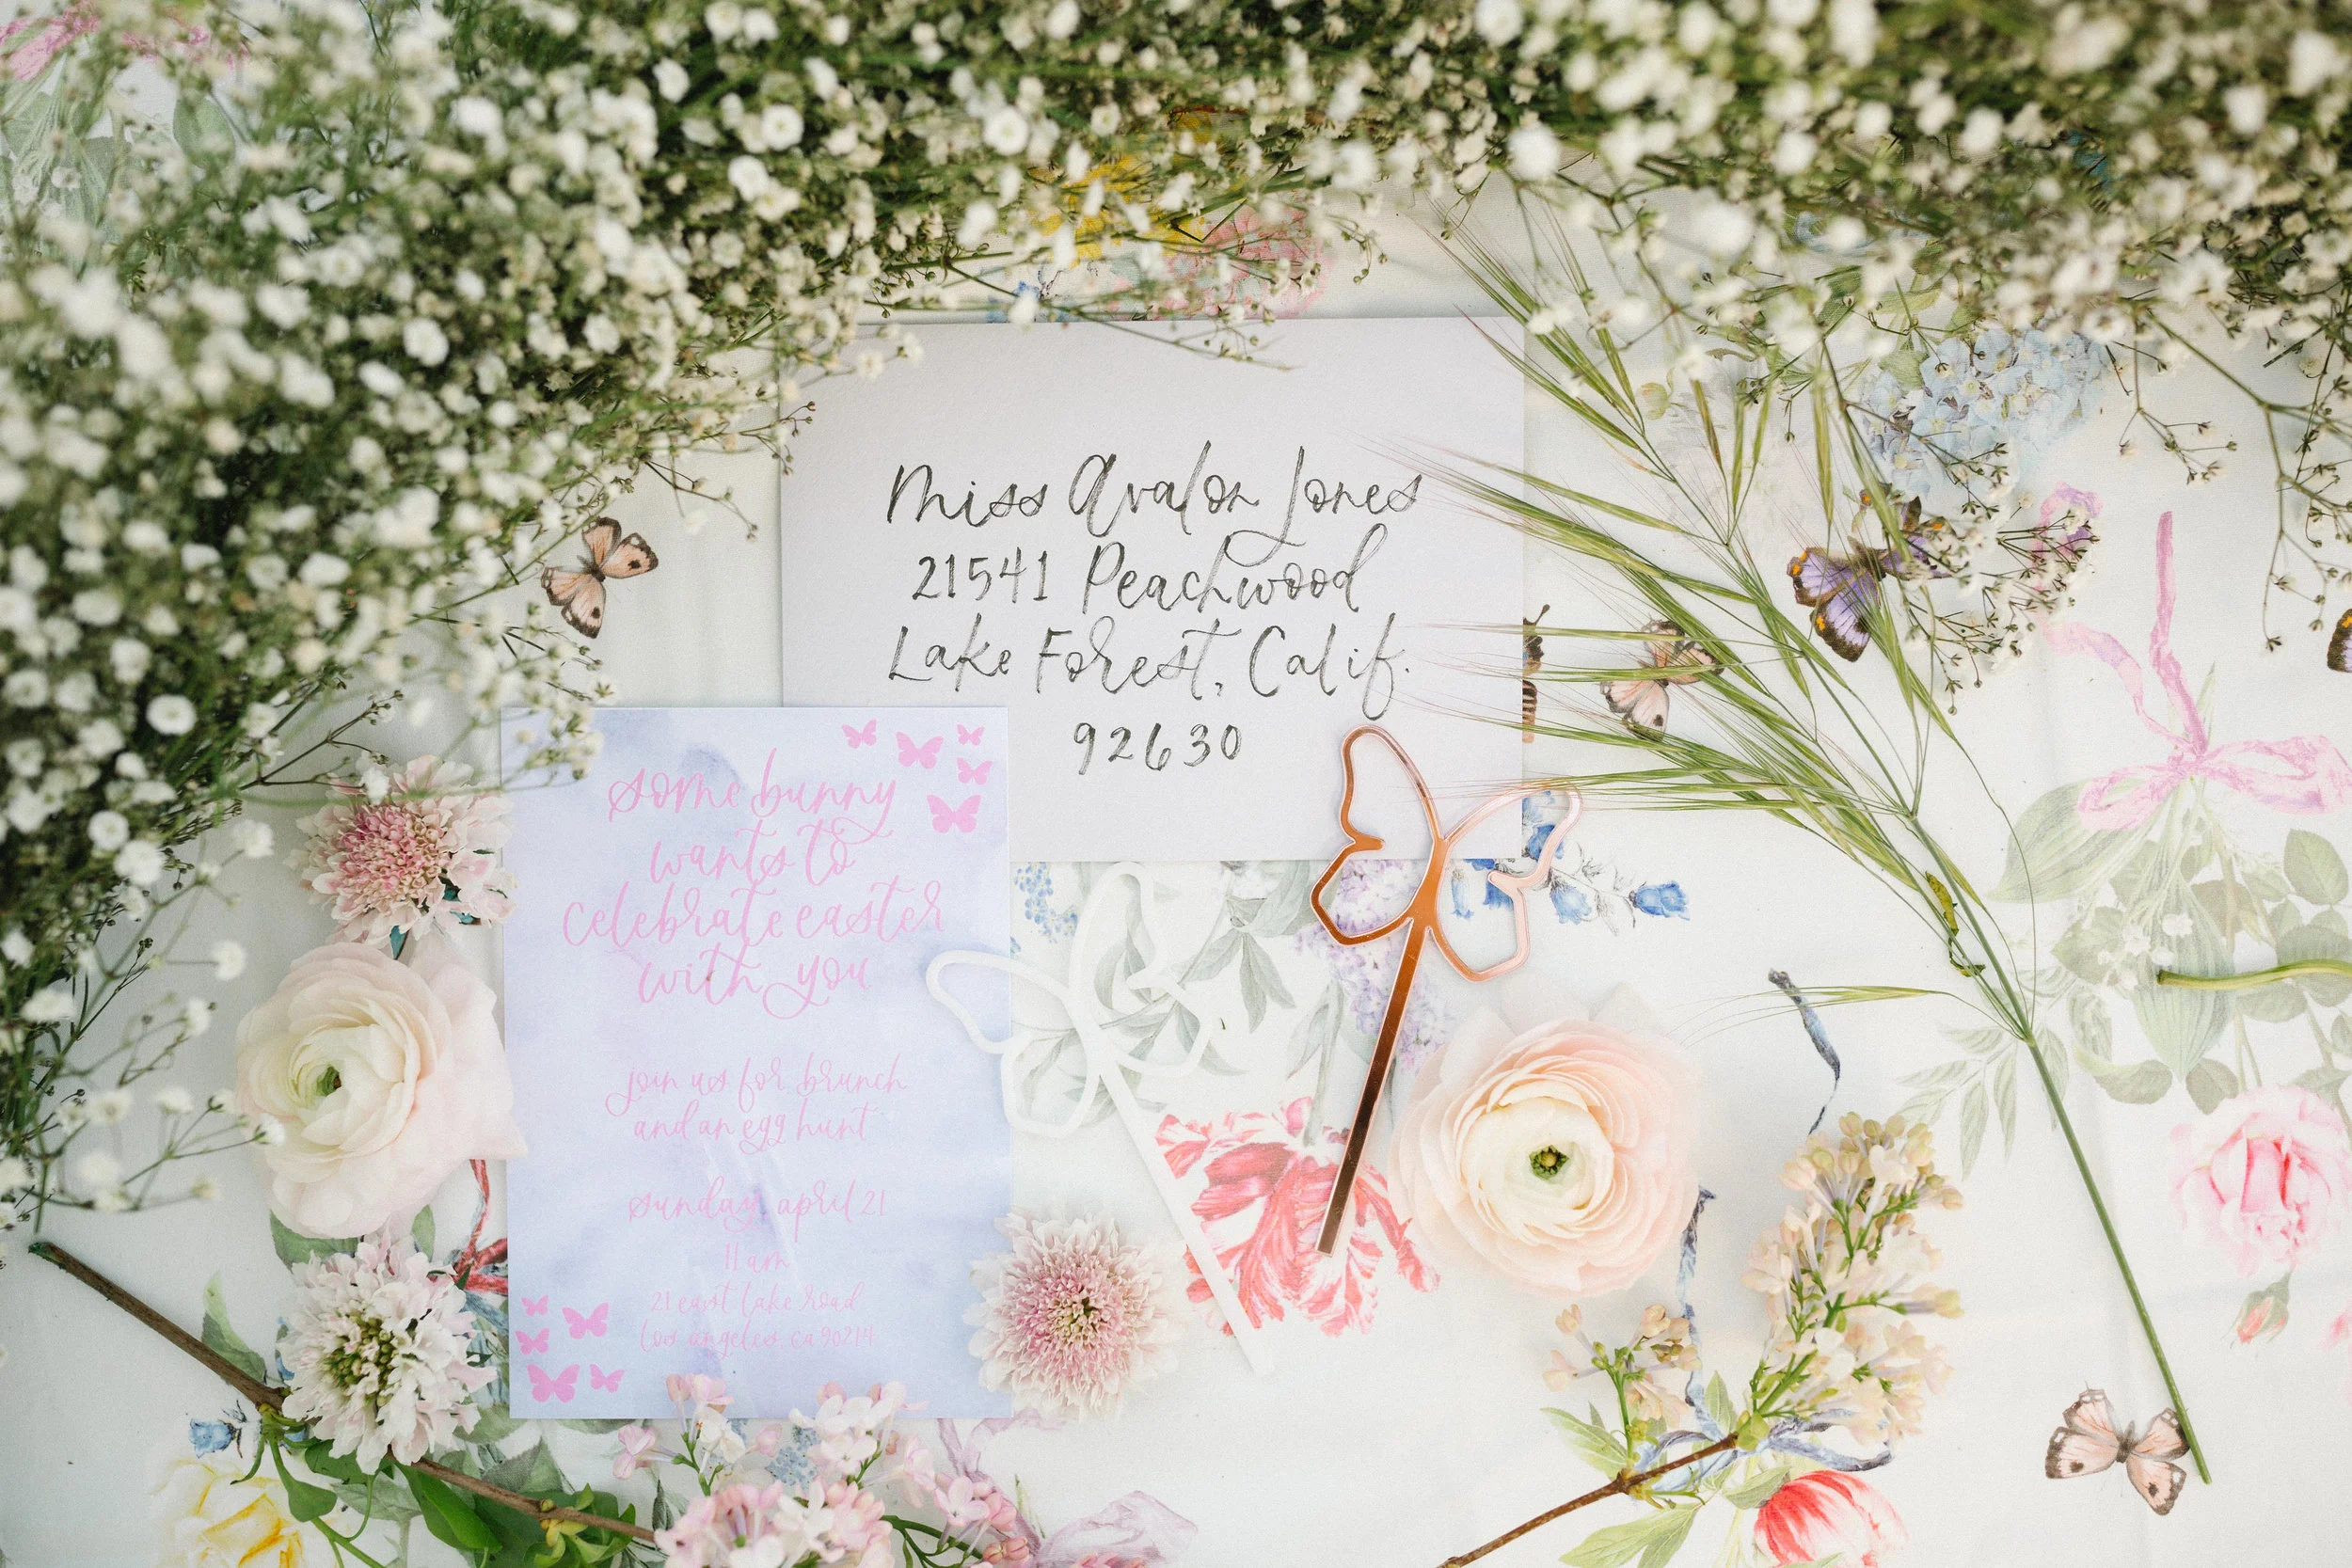 Miss Avalon Jones
21541 Peachwood
Lake Forest, Calif.
92630
some bunny
wants to
celebrate easter
with you
join us for brunch
and an egg hunt
sunday, april 21
11 am
21 east lake road
los angeles, ca 90214